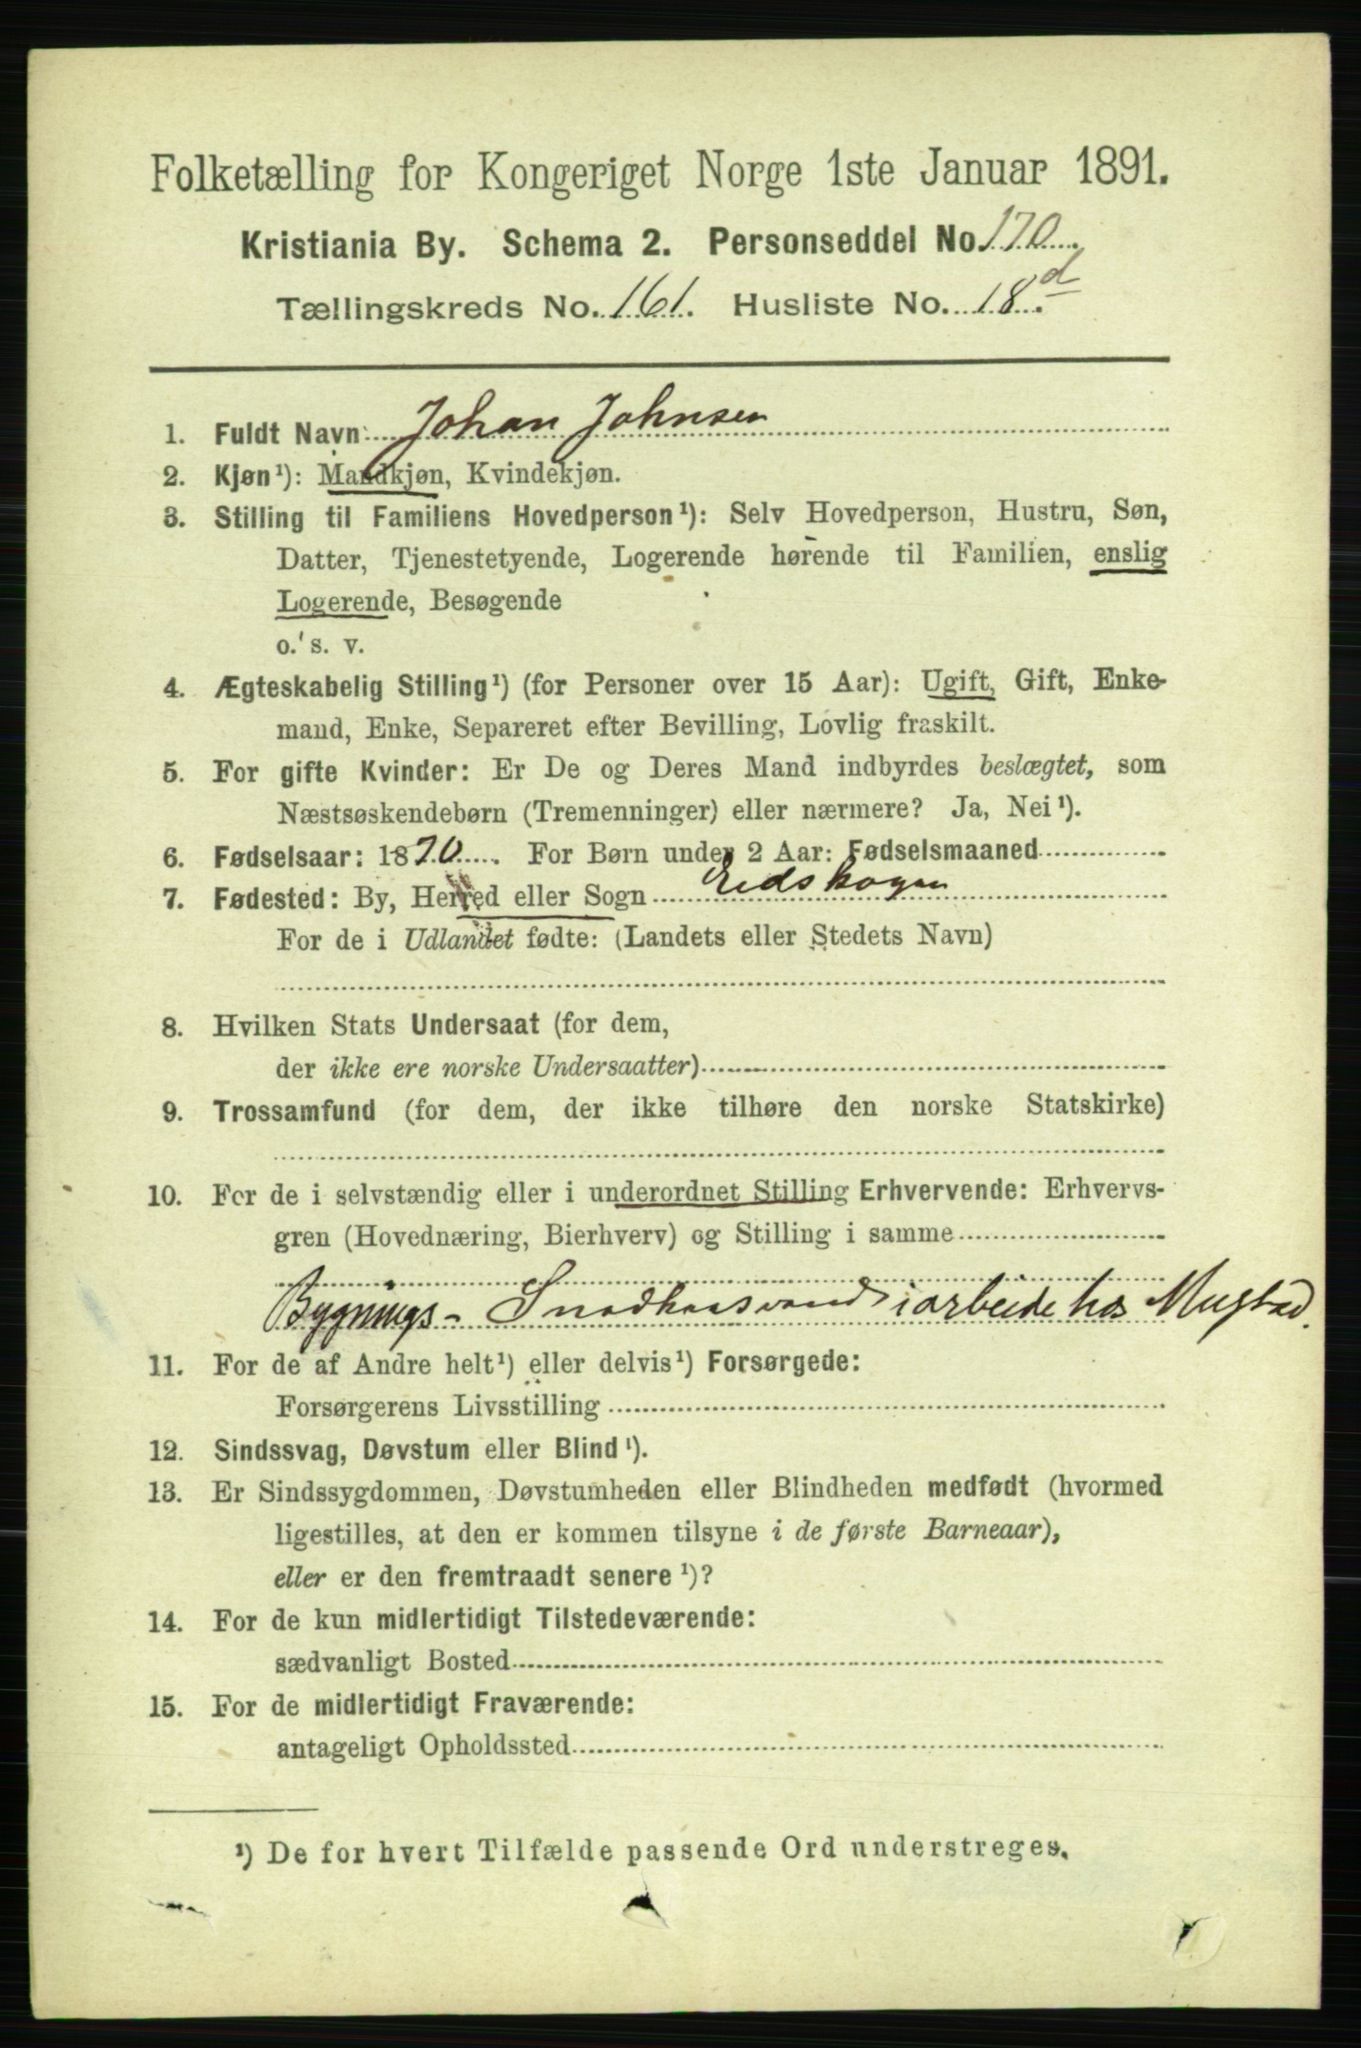 Folketælling for Kongeriget Norge 1ste Januar 1891.
Kristiania By. Schema 2. Personseddel No. 170.
Tællingskreds No. 161. Husliste No. 18d.
1. Fuldt Navn: Johan Johnsen
2. Kjøn¹): Mandkjøn, Kvindekjøn.
3. Stilling til Familiens Hovedperson¹): Selv Hovedperson, Hustru, Søn,
Datter, Tjenestetyende, Logerende hørende til Familien, enslig
Logerende, Besøgende
o. s. v.
4. Ægteskabelig Stilling¹) (for Personer over 15 Aar): Ugift, Gift, Enke-
mand, Enke, Separeret efter Bevilling, Lovlig fraskilt.
5. For gifte Kvinder: Er De og Deres Mand indbyrdes beslægtet, som
Næstsøskendebørn (Tremenninger) eller nærmere? Ja, Nei¹).
6. Fødselsaar: 1870. For Børn under 2 Aar: Fødselsmaaned
7. Fødested: By, Herred eller Sogn Eidskogen
For de i Udlandet fødte: (Landets eller Stedets Navn)
8. Hvilken Stats Undersaat (for dem,
der ikke ere norske Undersaatter)
9. Trossamfund (for dem, der ikke tilhøre den norske Statskirke)
10. For de i selvstændig eller i underordnet Stilling Erhvervende: Erhvervs-
gren (Hovednæring, Bierhverv) og Stilling i samme
Bygnings- i arbeide hos Mustad.
11. For de af Andre helt¹) eller delvis¹) Forsørgede:
Forsørgerens Livsstilling
12. Sindssvag, Døvstum eller Blind¹).
13. Er Sindssygdommen, Døvstumheden eller Blindheden medfødt (hvormed
ligestilles, at den er kommen tilsyne i de første Barneaar),
eller er den fremtraadt senere¹)?
14. For de kun midlertidigt Tilstedeværende:
sædvanligt Bosted
15. For de midlertidigt Fraværende:
antageligt Opholdssted
¹) De for hvert Tilfælde passende Ord understreges.